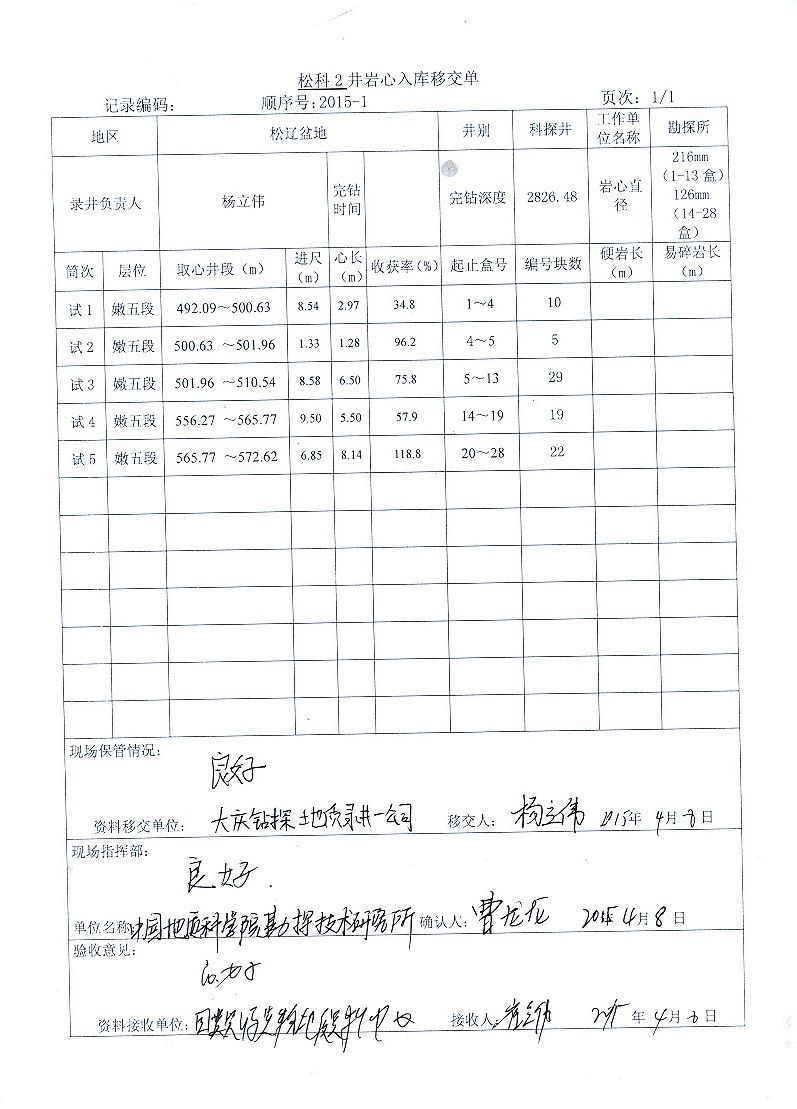 松科2井岩心入库移交单
记录编码： 顺序号:2015-1 页次：1/1
地区 松辽盆地 井别 科探井 工作单位名称 勘探所
录井负责人 杨立伟 完钻时间 完钻深度 2826.48 岩心直径 216mm（1-13盒）126mm（14-28盒）
筒次 层位 取心井段（m） 进尺（m） 心长（m） 收获率(%) 起止盒号 编号块数 硬岩长（m） 易碎岩长（m）
试1 嫩五段 492.09～500.63 8.54 2.97 34.8 1～4 10
试2 嫩五段 500.63 ～501.96 1.33 1.28 96.2 4～5 5
试3 嫩五段 501.96 ～510.54 8.58 6.50 75.8 5～13 29
试4 嫩五段 556.27 ～565.77 9.50 5.50 57.9 14～19 19
试5 嫩五段 565.77 ～572.62 6.85 8.14 118.8 20～28 22
现场保管情况：
良好
资料移交单位： 大庆钻探土地质录井一公司 移交人： 杨立伟 2015年 4月 8日
现场指挥部：
良好.
单位名称 中国地质科学院勘探技术研究所 确认人： 曹龙龙 2015年4月8日
验收意见：
良好
资料接收单位： 接收人： 2015年4月8日